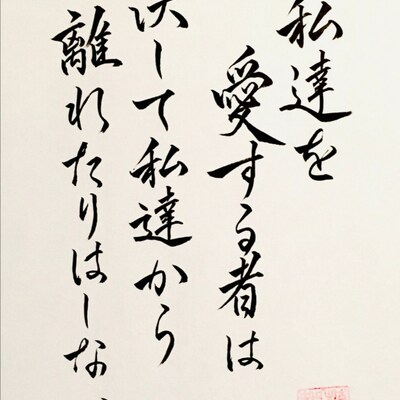 私達を
愛する者は
決して私達から
離れたりはしな